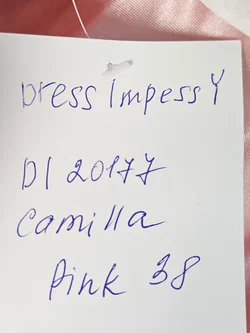 Dress Impess Y
DI 20177
Camilla
Pink 38